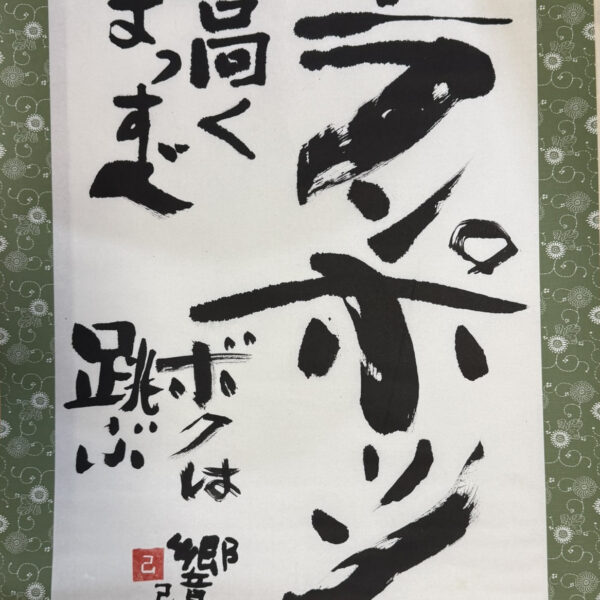 ランポリン
高く
まっすぐ
ボクは
跳ぶ
響
己